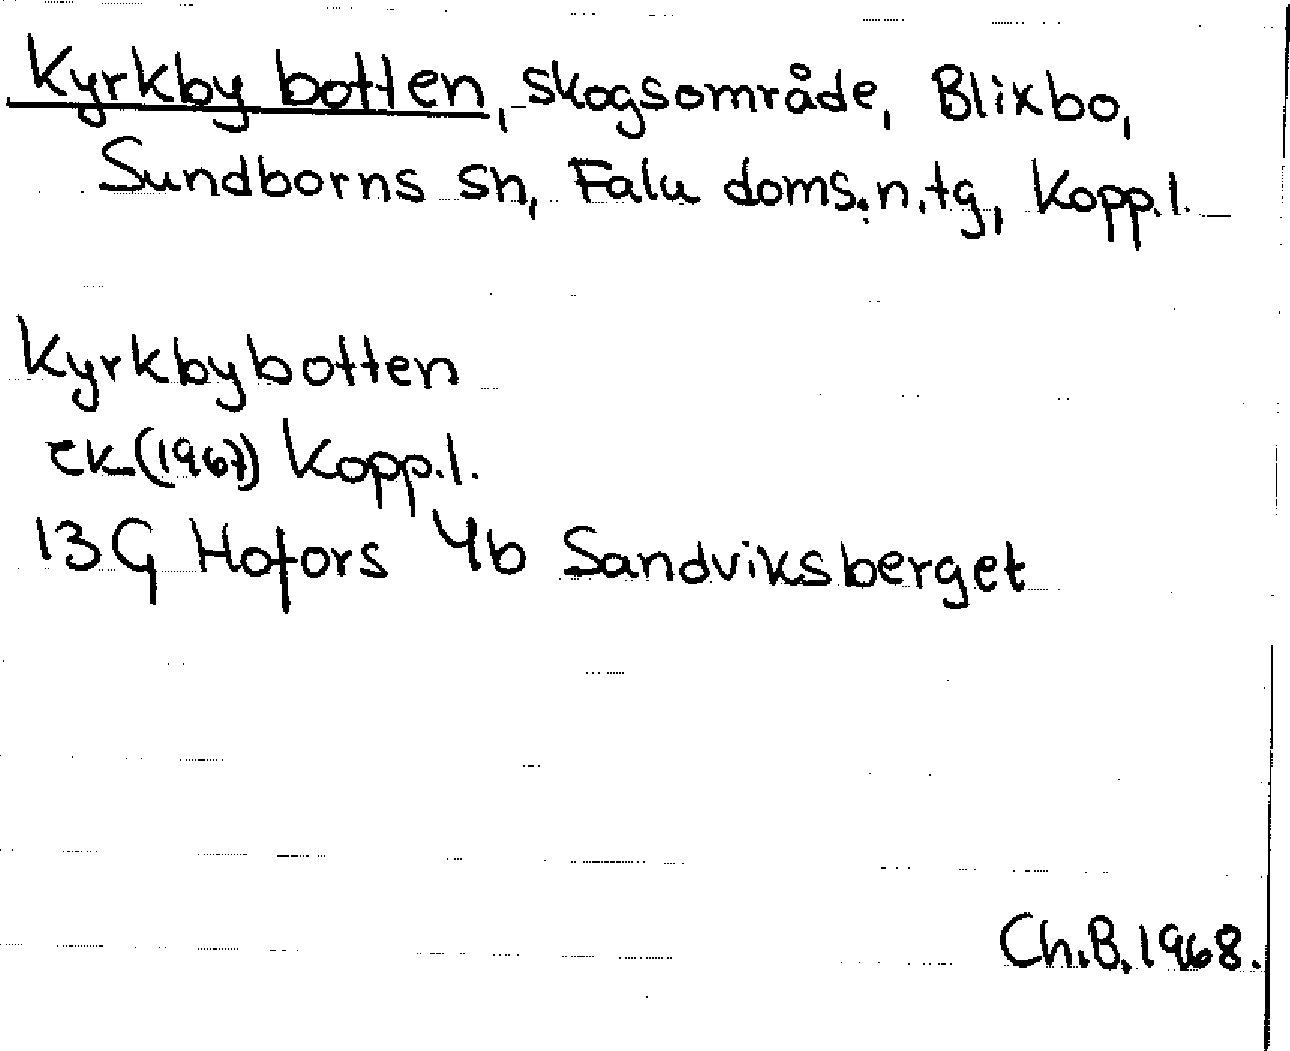 Kyrkbybotten, skogsområde, Blixbo,
Sundborns sn, Falu doms.n.tg, Kopp.l.
Kyrkbybotten
EK (1967) Kopp.l.
13G Hofors 4b Sandviksberget
Ch.B. 1968.